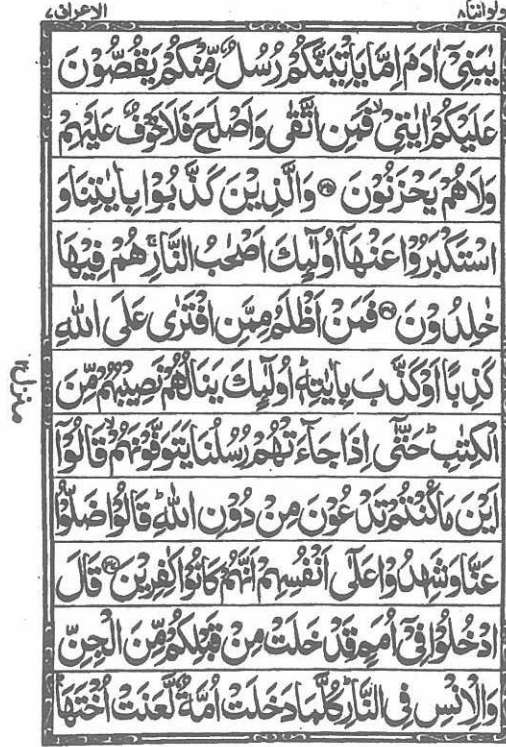 ولواننا ٨
الاعراف ٧
يٰبَنِيْٓ اٰدَمَ اِمَّا يَاْتِيَنَّكُمْ رُسُلٌ مِّنْكُمْ يَقُصُّوْنَ
عَلَيْكُمْ اٰيٰتِيْ ۙ فَمَنِ اتَّقٰى وَاَصْلَحَ فَلَا خَوْفٌ عَلَيْهِمْ
وَلَا هُمْ يَحْزَنُوْنَ ۝۳۵ وَالَّذِيْنَ كَذَّبُوْا بِاٰيٰتِنَا وَ
اسْتَكْبَرُوْا عَنْهَآ اُولٰٓئِكَ اَصْحٰبُ النَّارِ ۚ هُمْ فِيْهَا
خٰلِدُوْنَ ۝۳۶ فَمَنْ اَظْلَمُ مِمَّنِ افْتَرٰى عَلَى اللّٰهِ
كَذِبًا اَوْ كَذَّبَ بِاٰيٰتِهٖ ؕ اُولٰٓئِكَ يَنَالُهُمْ نَصِيْبُهُمْ مِّنَ
الْكِتٰبِ ؕ حَتّٰٓى اِذَا جَآءَتْهُمْ رُسُلُنَا يَتَوَفَّوْنَهُمْ ۙ قَالُوْٓا
اَيْنَ مَا كُنْتُمْ تَدْعُوْنَ مِنْ دُوْنِ اللّٰهِ ؕ قَالُوْا ضَلُّوْا
عَنَّا وَشَهِدُوْا عَلٰٓى اَنْفُسِهِمْ اَنَّهُمْ كَانُوْا كٰفِرِيْنَ ۝۳۷ قَالَ
ادْخُلُوْا فِيْٓ اُمَمٍ قَدْ خَلَتْ مِنْ قَبْلِكُمْ مِّنَ الْجِنِّ
وَالْاِنْسِ فِى النَّارِ ؕ كُلَّمَا دَخَلَتْ اُمَّةٌ لَّعَنَتْ اُخْتَهَا ؕ
منزل ٢